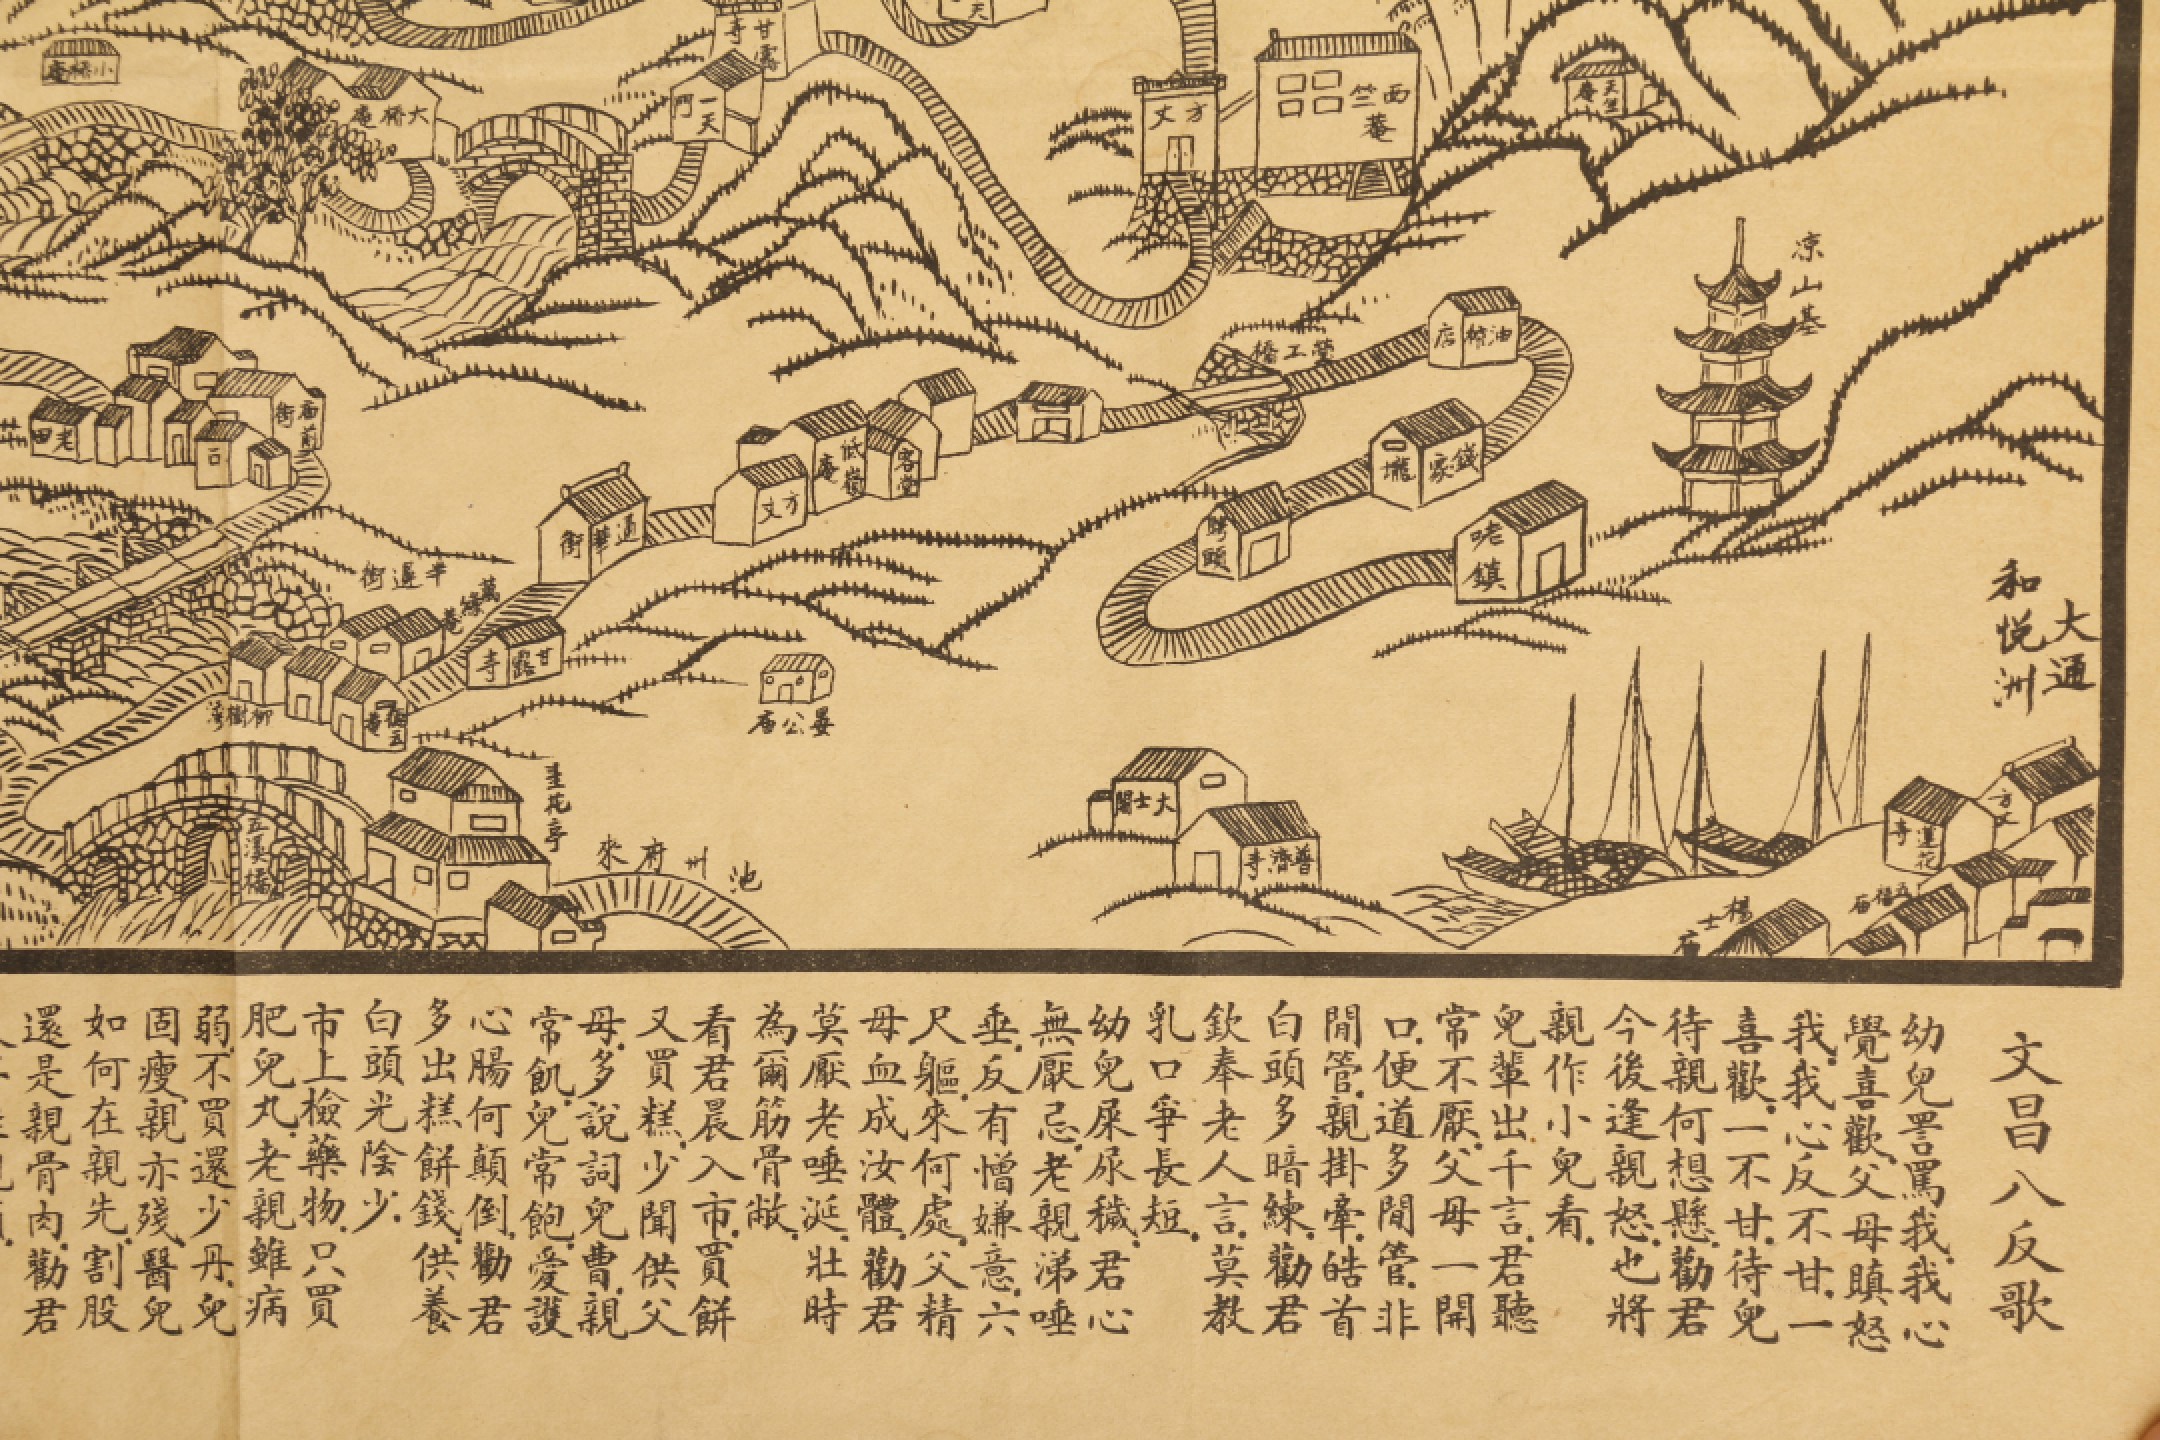 天
甘露寺
小橋庵
大橋庵
一天門
方丈
西竺菴
天竺庵
凉山塔
油榨店
廟前街
老田
低嶺庵
客堂
方丈
錢家壠
通華街
老鎮
萬緣菴
甘露寺
柳樹
晏公庙
大通
和悦洲
大士閣
普濟寺
蓮花寺
方丈
五福庙
楊士庙
五溪橋
圭花亭
池州府來
文昌八反歌
幼兒詈罵我.我心
覺喜歡.父母瞋怒
我.我心反不甘.一
喜歡.一不甘.待兒
待親何想懸.勸君
今後逢親怒.也將
親作小兒看.
兒輩出千言.君聽
常不厭.父母一開
口.便道多閒管.非
閒管.親掛牽.皓首
白頭多暗練.勸君
欽奉老人言.莫教
乳口爭長短.
幼兒屎尿穢.君心
無厭忌.老親涕唾
垂.反有憎嫌意.六
尺軀.來何處.父精
母血成汝體.勸君
莫厭老唾涎.壯時
為爾筋骨敝.
看君晨入市.買餅
又買糕.少聞供父
母.多說詞兒曹.親
常飢.兒常飽.愛護
心腸何顛倒.勸君
多出糕餅錢.供養
白頭光陰少.
市上檢藥物.只買
肥兒丸.老親雖病
弱.不買還少丹.兒
固瘦.親亦殘.醫兒
如何在親先.割股
還是親骨肉.勸君